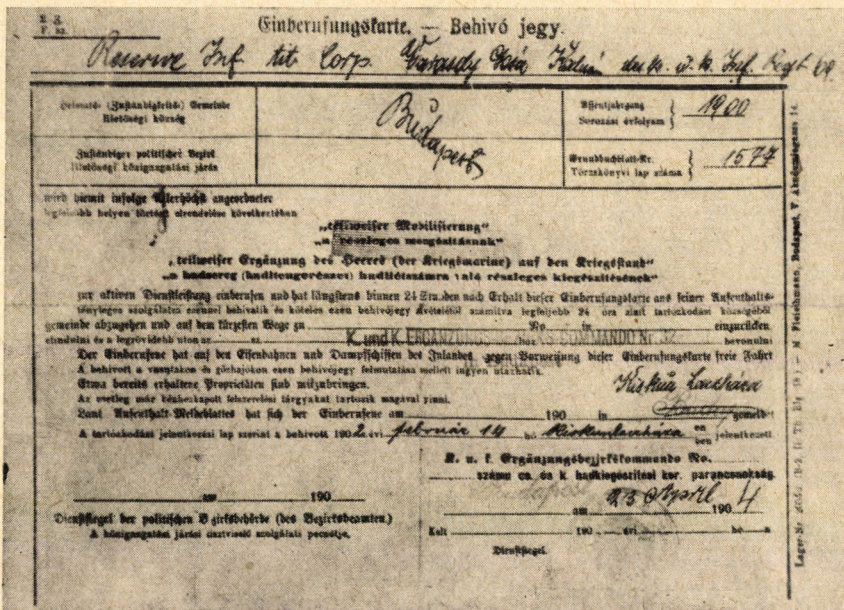 Einberufungskarte. — Behivó jegy.
Reserve Inf. tit. Corp. Kálmán des k. u. k. Inf. Regt 69.
(Zuständigkeits-) Gemeinde
Illetőségi község
Budapest
Assentjahrgang
Sorozási évfolyam } 1900
Zuständiger politischer Bezirk
Illetőségi közigazgatási járás
Grundbuchblatt-Nr.
Törzskönyvi lap száma } 1577
wird hiemit infolge Allerhöchst angeordneter
legfelsőbb helyen történt elrendelése következtében
„teilweiser Mobilisierung"
„a részleges mozgósításnak"
„teilweiser Ergänzung des Heeres (der Kriegsmarine) auf den Kriegsstand"
„a hadsereg (haditengerészet) hadilétszámra való részleges kiegészítésének"
zur aktiven Dienstleistung einberufen und hat längstens binnen 24 Stunden nach Erhalt dieser Einberufungskarte aus seiner Aufenthalts-
tényleges szolgálatra ezennel behivatik és köteles ezen behivójegy átvételétől számítva legfeljebb 24 óra alatt tartózkodási községéből
gemeinde abzugehen und auf dem kürzesten Wege zu No. in einzurücken
elindulni és a legrövidebb úton az sz. hoz bevonulni
K. und K. ERGÄNZUNGS COMMANDO Nr. 32
Der Einberufene hat auf den Eisenbahnen und Dampfschiffen des Inlandes gegen Vorweisung dieser Einberufungskarte freie Fahrt
A behivott a vasutakon és gőzhajókon ezen behivójegy felmutatása mellett ingyen utazhatik.
Etwa bereits erhaltene Proprietäten sind mitzubringen.
Az esetleg már kézhezkapott felszerelési tárgyakat tartozik magával vinni.
Laut Aufenthalt-Meldeblattes hat sich der Einberufene am 190 in gemeldet
A tartózkodási jelentkezési lap szerint a behivott 1902 évi február 14 hó Kiskunlaczháza en ben jelentkezett
K. u. k. Ergänzungsbezirkskommando No.
számú cs. és k. hadkiegészítési ker. parancsnokság.
23 April
am 190 4
am 190
Dienstsiegel der politischen Bezirksbehörde (des Bezirksbeamten.)
A közigazgatási járási tisztviselő szolgálati pecsétje.
Kelt 190 évi hó n
Dienstsiegel.
Fleischmann, Budapest, V Akademiegasse